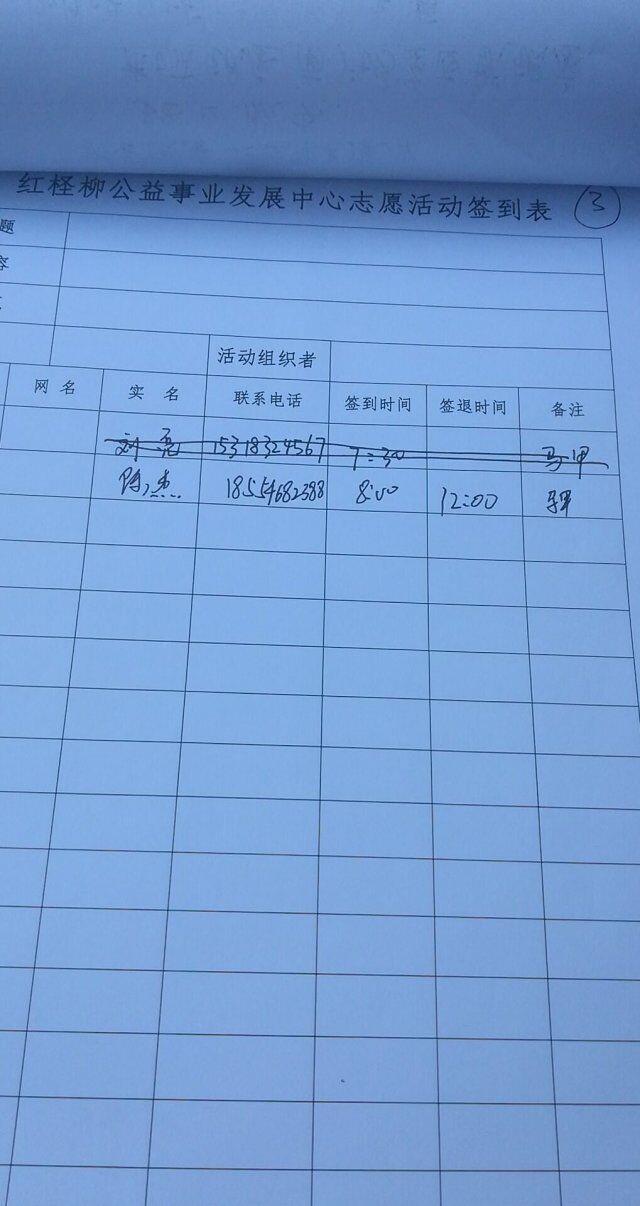 红柽柳公益事业发展中心志愿活动签到表 3
题
容
活动组织者
网名 实名 联系电话 签到时间 签退时间 备注
刘亮 15318324567 7:30 马甲
陈杰 18554682388 8:00 12:00 马甲